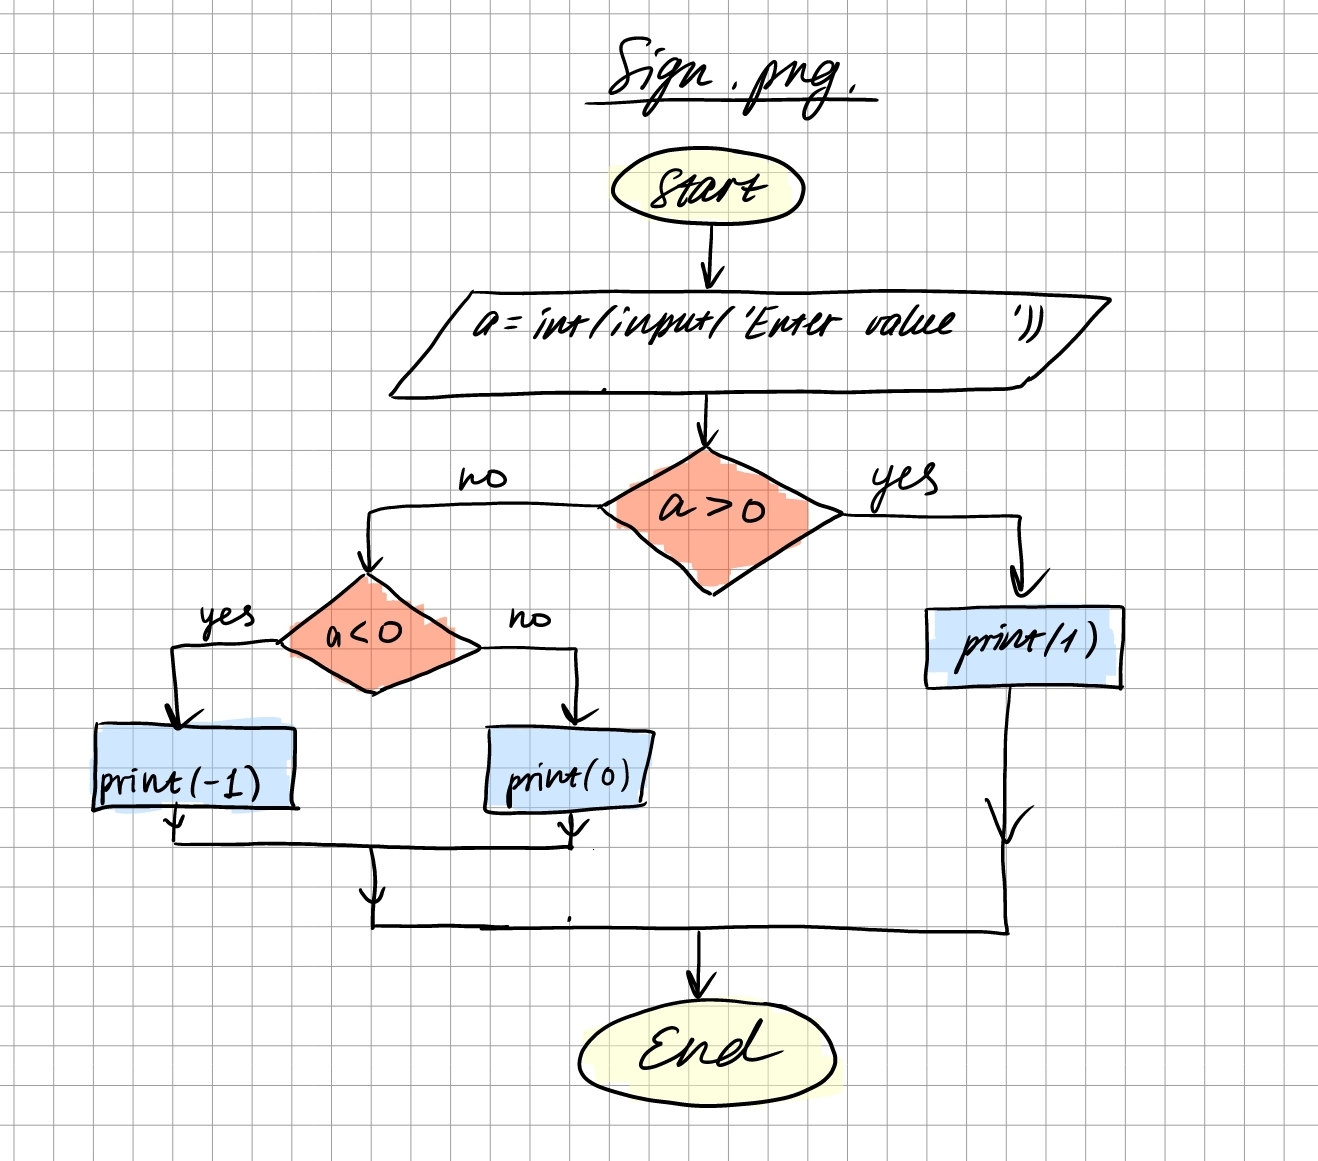 Sign.png.
Start
a = int(input('Enter value '))
a > 0
no
yes
a < 0
yes
no
print(1)
print(-1)
print(0)
End